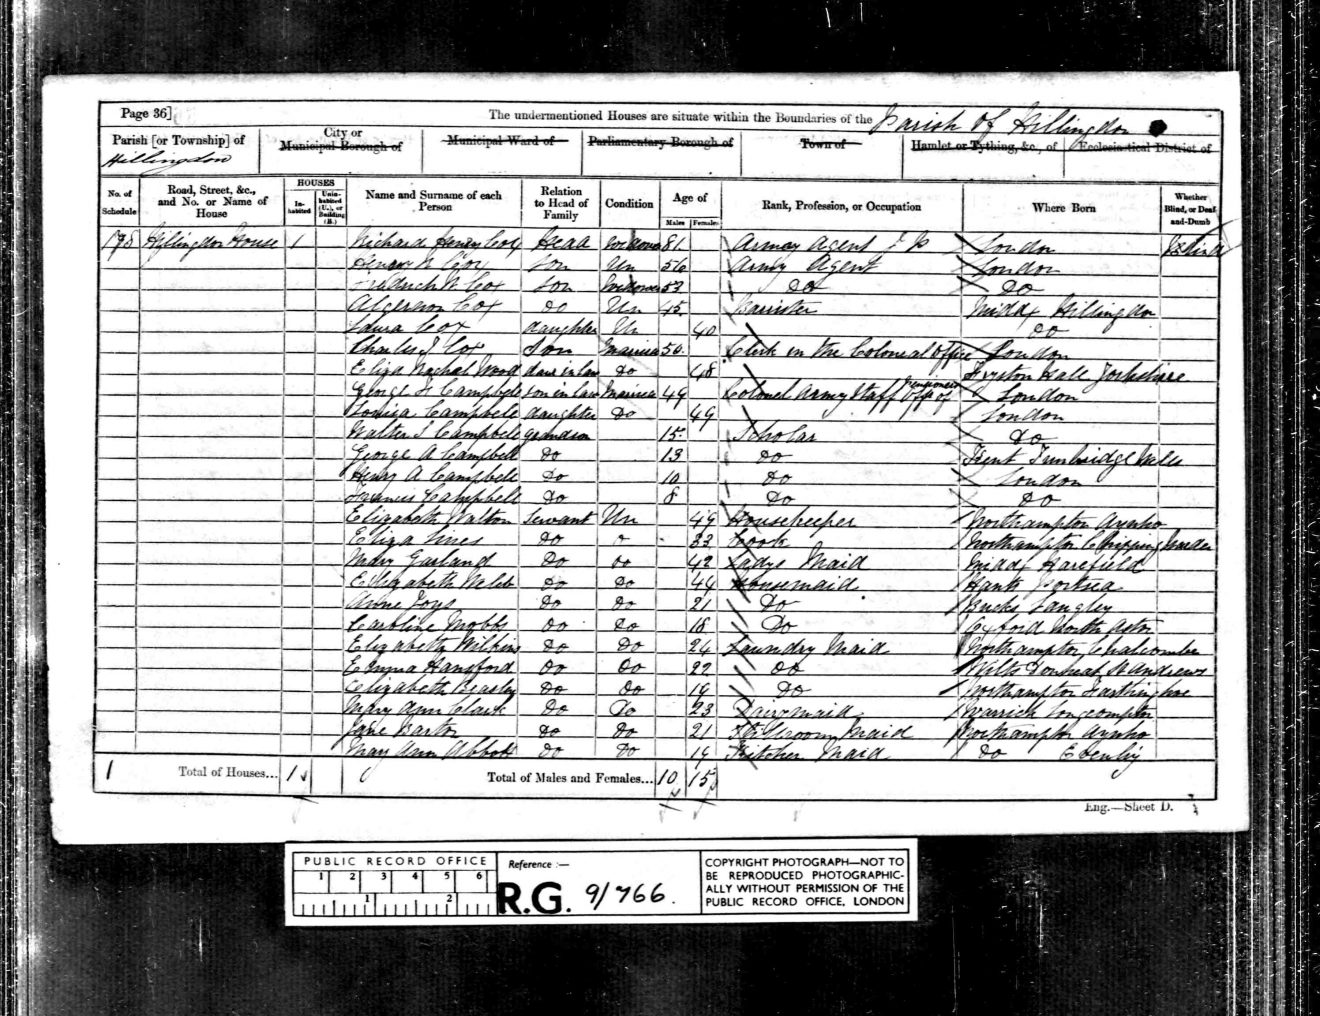 Page 36]
The undermentioned Houses are situate within the Boundaries of the Parish of Hillingdon
Parish [or Township] of
Hillingdon
City or
Municipal Borough of
Municipal Ward of
Parliamentary Borough of
Town of
Hamlet or Tything, &c., of
Ecclesiastical District of
No. of Schedule
Road, Street, &c., and No. or Name of House
HOUSES
In-habited
Unin-habited (U.), or Building (B.)
Name and Surname of each Person
Relation to Head of Family
Condition
Age of
Males
Females
Rank, Profession, or Occupation
Where Born
Whether Blind, or Deaf-and-Dumb
198 Hillingdon House 1 Richard Henry Cox Head Widower 81 Army Agent J P London
Henry R Cox Son Un 56 Army Agent London
Fredrick W Cox Son Widower 53 Do Do
Algernon Cox Do Un 45 Barrister Middx Hillingdon
Laura Cox daughter Un 40 Do
Charles J Cox Son Married 50 Clerk in the Colonial Office London
Eliza daur in law Do 48 Fryston Hall Yorkshire
George H Campbell son in law Married 49 Colonel Army Staff Pensioners London
Louisa Campbell daughter Do 49 London
Walter S Campbell grandson 15 Scholar Do
George A Campbell Do 13 Do Kent Tunbridge Wells
Henry A Campbell Do 10 Do London
Francis Campbell Do 8 Do Do
Elizabeth Walton Servant Un 49 Housekeeper Northampton Aynho
Eliza Do 33 Cook Northampton Chipping Warden
Mary Garland Do Do 42 Ladys Maid Middx Harefield
Elizabeth Webb Do Do 44 Housemaid Hants Portsea
Anne Joys Do Do 21 Do Bucks Langley
Caroline Mobbs Do Do 18 Do Oxford North Aston
Elizabeth Wilkins Do Do 24 Laundry Maid Northampton Chalcombe
Emma Hansford Do Do 22 Do Wilts Donhead St Andrews
Elizabeth Beasley Do Do 19 Do Northampton Farthinghoe
Mary Ann Clark Do Do 23 Dairymaid Warrick Longcompton
Jane Barton Do Do 21 Stillroom Maid Northampton Aynho
Mary Ann Abbott Do Do 19 Kitchen Maid Do Evenly
1 Total of Houses... 1 Total of Males and Females... 10 15
Eng.—Sheet D.
PUBLIC RECORD OFFICE
1 2 3 4 5 6
1 2
Reference :—
R.G. 9/766.
COPYRIGHT PHOTOGRAPH—NOT TO
BE REPRODUCED PHOTOGRAPHIC-
ALLY WITHOUT PERMISSION OF THE
PUBLIC RECORD OFFICE, LONDON